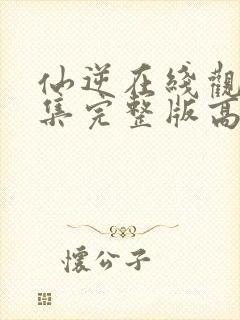 仙逆在綫觀
集完整版高
懷公子